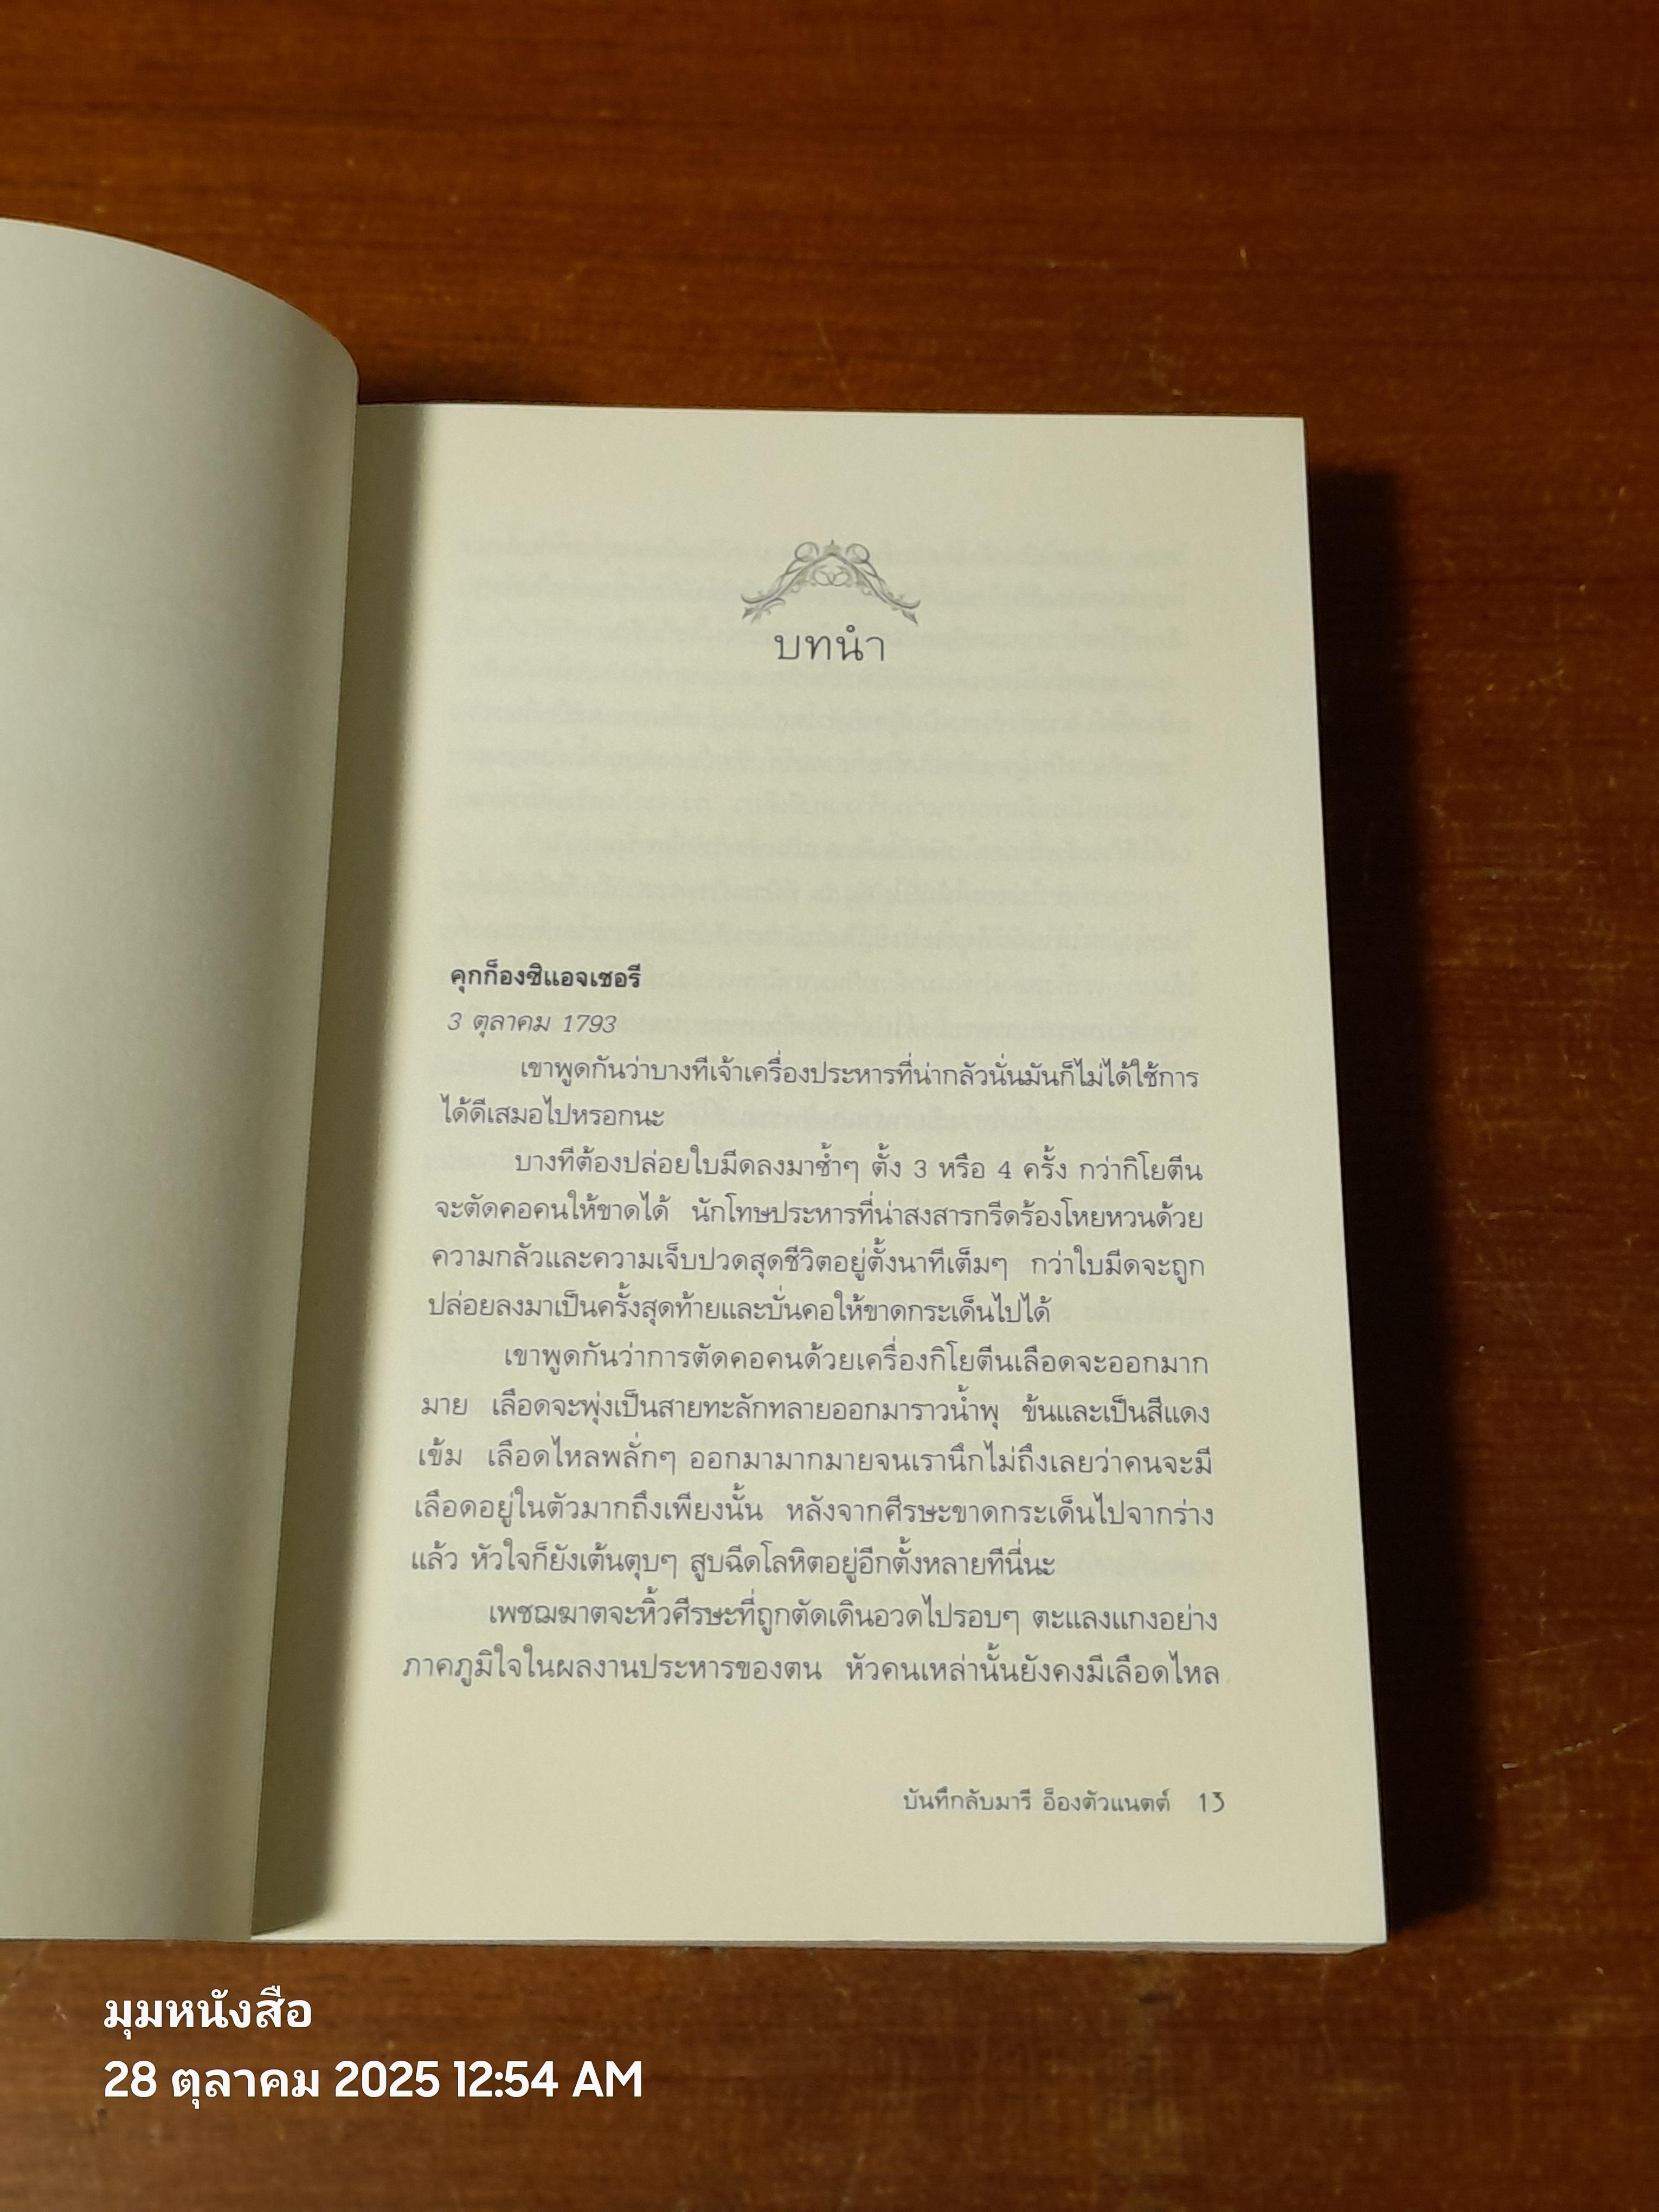 บทนำ
คุกก็องซิแอจเชอรี
3 ตุลาคม 1793
เขาพูดกันว่าบางทีเจ้าเครื่องประหารที่น่ากลัวนั่นมันก็ไม่ได้ใช้การ
ได้ดีเสมอไปหรอกนะ
บางทีต้องปล่อยใบมีดลงมาซ้ำๆ ตั้ง 3 หรือ 4 ครั้ง กว่ากิโยตีน
จะตัดคอคนให้ขาดได้ นักโทษประหารที่น่าสงสารกรีดร้องโหยหวนด้วย
ความกลัวและความเจ็บปวดสุดชีวิตอยู่ตั้งนาทีเต็มๆ กว่าใบมีดจะถูก
ปล่อยลงมาเป็นครั้งสุดท้ายและบั่นคอให้ขาดกระเด็นไปได้
เขาพูดกันว่าการตัดคอคนด้วยเครื่องกิโยตีนเลือดจะออกมาก
มาย เลือดจะพุ่งเป็นสายทะลักทลายออกมาราวน้ำพุ ข้นและเป็นสีแดง
เข้ม เลือดไหลพลั่กๆ ออกมามากมายจนเรานึกไม่ถึงเลยว่าคนจะมี
เลือดอยู่ในตัวมากถึงเพียงนั้น หลังจากศีรษะขาดกระเด็นไปจากร่าง
แล้ว หัวใจก็ยังเต้นตุบๆ สูบฉีดโลหิตอยู่อีกตั้งหลายทีนี่นะ
เพชฌฆาตจะหิ้วศีรษะที่ถูกตัดเดินอวดไปรอบๆ ตะแลงแกงอย่าง
ภาคภูมิใจในผลงานประหารของตน หัวคนเหล่านั้นยังคงมีเลือดไหล
บันทึกลับมารี อ็องตัวแนตต์ 13
มุมหนังสือ
28 ตุลาคม 2025 12:54 AM